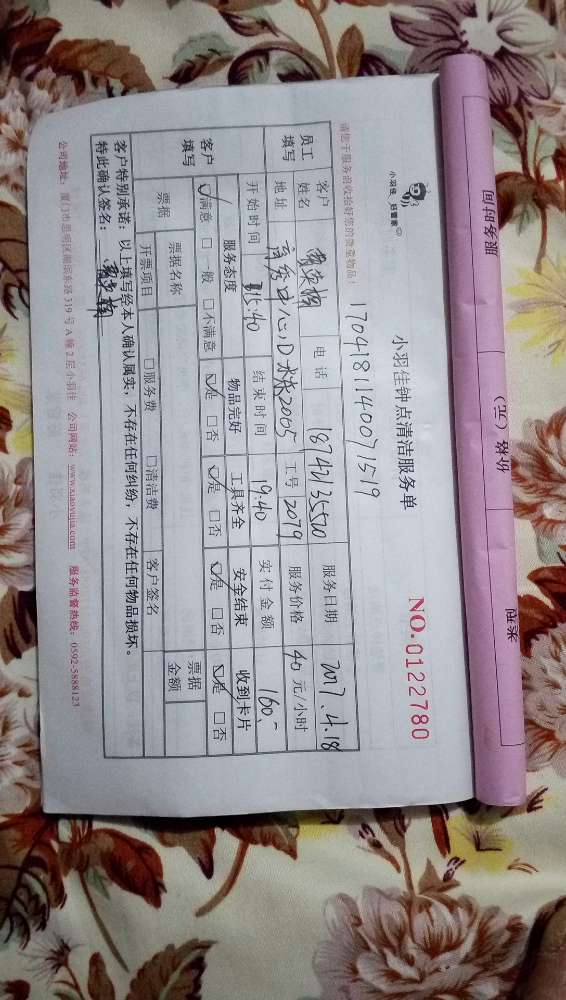 小羽佳 好管家
小羽佳钟点清洁服务单
NO.0122780
请您于服务前收拾好您的贵重物品！
170418114007 1519
员工填写
客户姓名 电话 服务日期 2017.4.18
地址 工号 2079 服务价格 40 元/小时
开始时间 15:40 结束时间 19:40 实付金额 160.-
客户填写
服务态度 物品完好 工具齐全 安全结束 收到卡片
☑满意 □一般 □不满意 ☑是 □否 ☑是 □否 ☑是 □否 ☑是 □否
票据 票据名称 票据金额
开票项目 □服务费 □清洁费 客户签名
客户特别承诺：以上填写经本人确认属实，不存在任何纠纷，不存在任何物品损坏。
特此确认签名：
公司地址：厦门市思明区湖滨东路 319 号 A 幢 2 层小羽佳 公司网站：www.xiaoyujia.com 服务监督热线：0592-5888123
服务时间
价格（元）